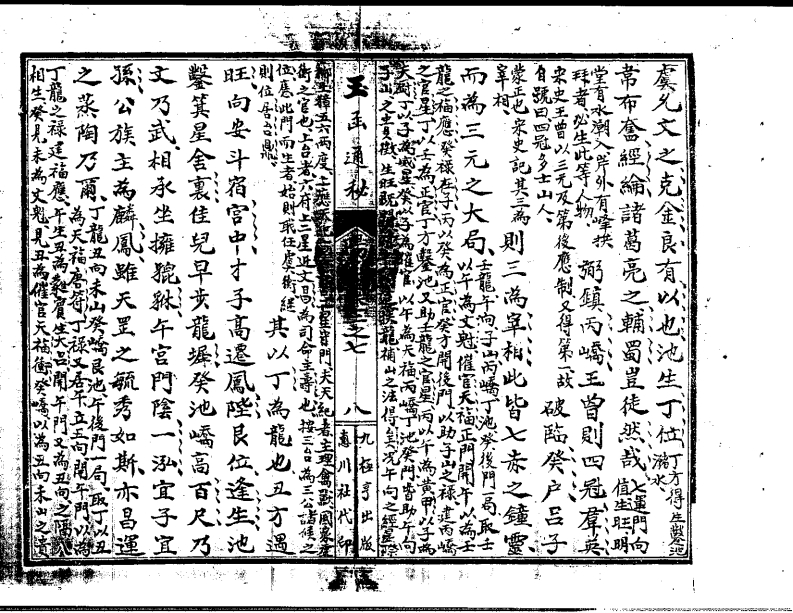 虞允文之克金良有以也池生丁位丁方得生鑿池瀦水
常布奮經綸諸葛亮之輔蜀豈徒然哉七運門向值生旺明
堂有水潮入岸外有峰拱
拜者必生此等人物 弼鎮丙嶠王曾則四冠羣英
宋史王曾以三元及第後應制又得第一故
自號曰四冠多士山人 破臨癸户呂子
蒙正也宋史記其三為
宰相 則三為宰相此皆七赤之鐘靈
而為三元之大局壬龍午向子山丙嶠丁池癸後門一局取壬
以午為文魁催官天福正門開午以為壬
龍之福應癸祿在子丙以癸為正官癸方開後門以助子山之祿建丙嶠
之官星丁以壬為正官丁方鑿池又助壬龍之官星丙以午為黄甲以子為
以子為 癸以子為催官以午為天福丙嶠丁池癸門皆助午向
子山之 生旺
龍補山之法得 况午向之經星
玉函通秘
之七
八
九極亨出版
惠川社代印
五六兩度 門天 紀者主理禽獸
衡之官也上台者六府上二星近文昌為司命主壽也按三台為三公諸候之
位應此門而生者始則職任虞衡繼
則位居台鼎 其以丁為龍也丑方遇
旺向安斗宿宫中才子高遷鳳陛艮位逢生池
鑿箕星舍裏佳兒早步龍墀癸池嶠高百尺乃
文乃武相承坐擁貔貅午宮門陰一泓宜子宜
孫公族主為麟鳳雖天罡之毓秀如斯亦昌運
之蒸陶乃爾丁龍丑向未山癸嶠艮池午後門一局取丁以丑
為天福唐符丁祿又居午立丑向開午門以為
丁龍之祿建福應午生丑為 賓生大呂開午門又為丑向之
相生癸見未為文魁見丑為催官天福衝癸嶠以為丑向未山之貴